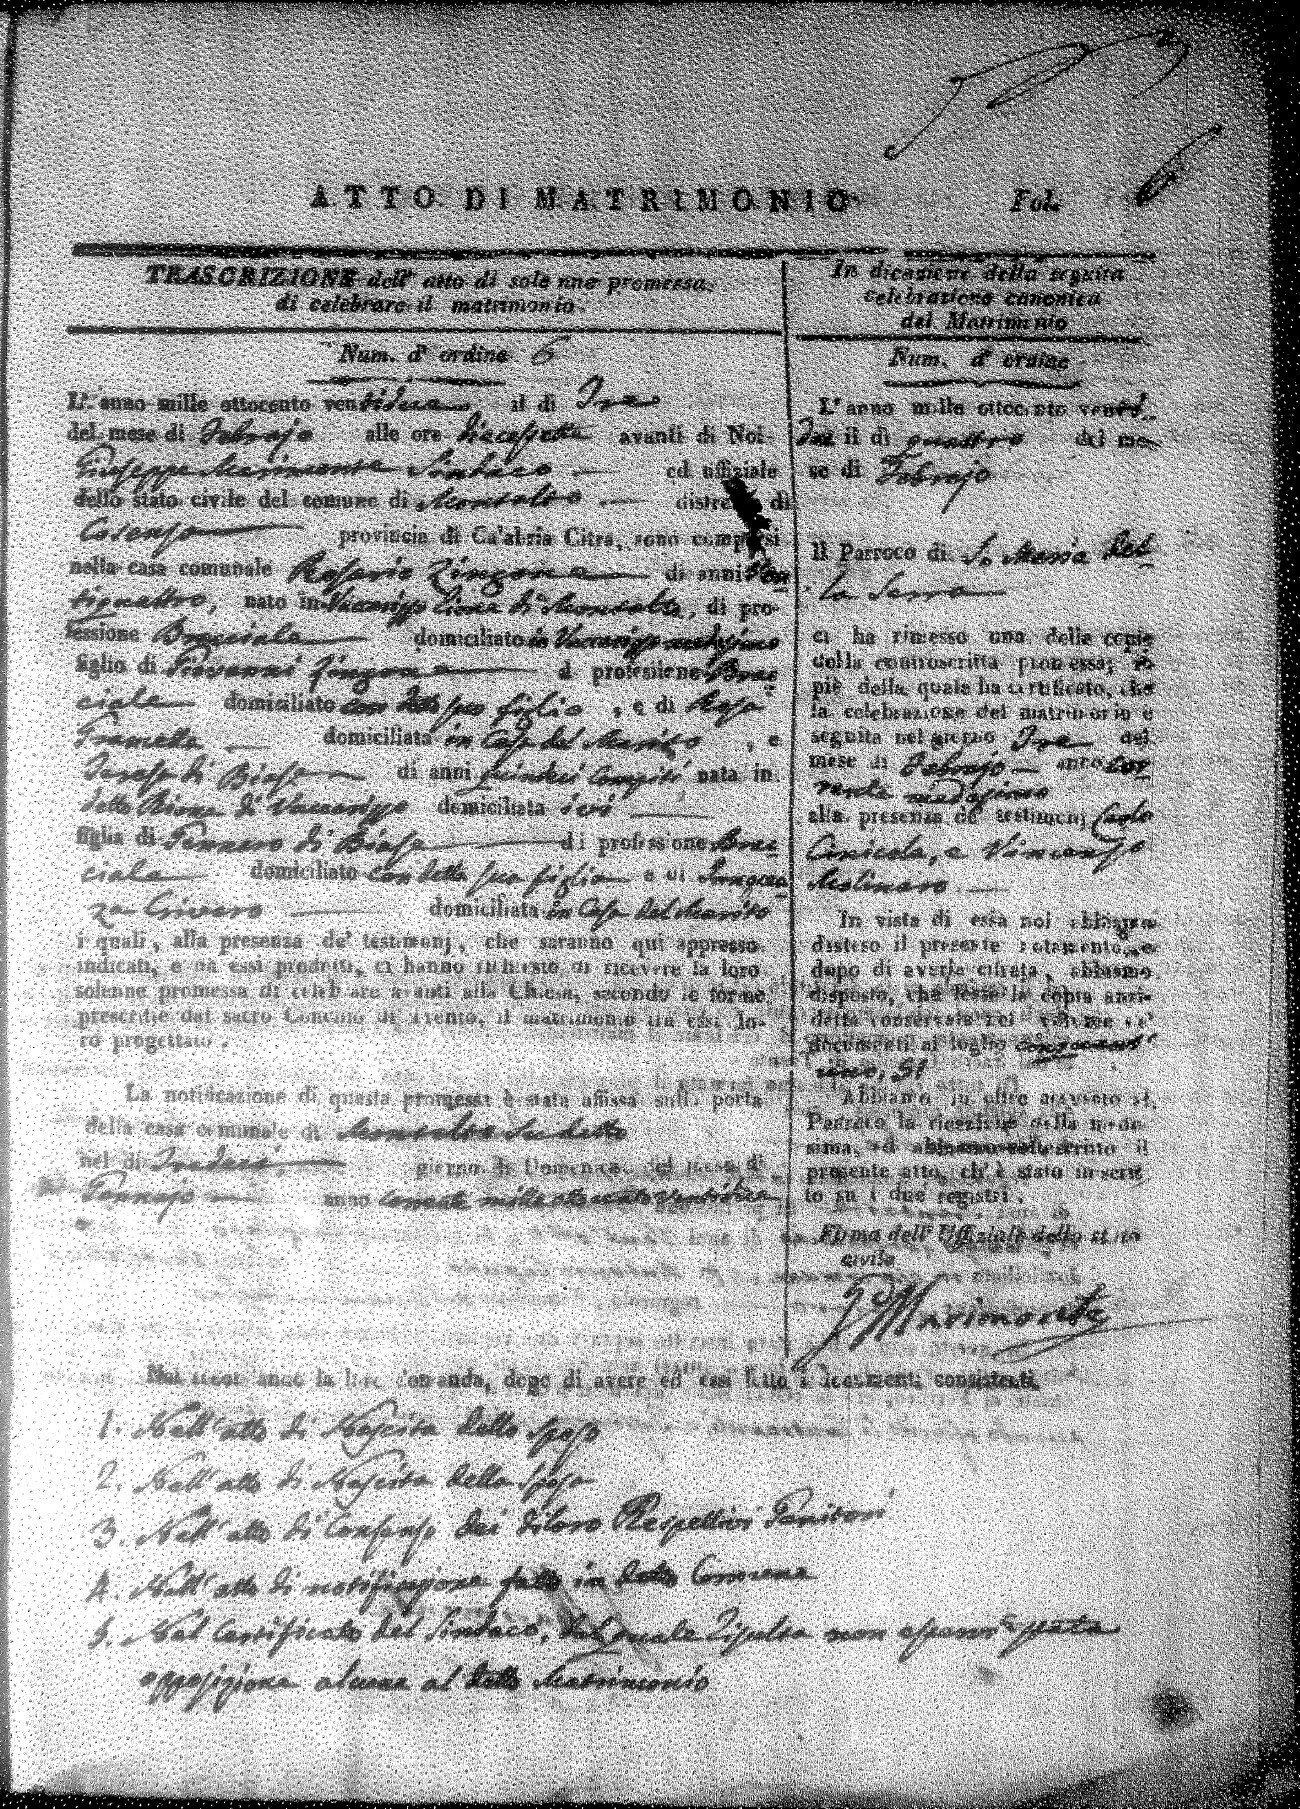 ATTO DI MATRIMONIO Fol.
TRASCRIZIONE dell' atto di solenne promessa
di celebrare il matrimonio.
Num. d' ordine 6
L' anno mille ottocento ventidue, il di Tre
del mese di Febrajo alle ore diecessette avanti di Noi
Giuseppe Marimonte Sindaco ed uffiziale
dello stato civile del comune di Montalto distretto di
Cosenza provincia di Calabria Citra, sono comparsi
nella casa comunale Rosario Zingone di anni Ven
tiquattro, nato in Vaccarizzo di Montalto, di pro-
fessione Bracciale domiciliato in Vaccarizzo medesimo
figlio di Giovanni Zingone di professione Brac
ciale domiciliato con suo figlio, e di Rosa
domiciliata in Casa del Marito, e
Teresa di Biase di anni quindeci compiti nata in
detto di Vaccarizzo domiciliata ivi
figlia di Gennaro di Biase di professione Brac
ciale domiciliato con detta sua figlia e di Innocen
za Civero domiciliata in Casa del Marito
i quali, alla presenza de' testimonj, che saranno qui appresso
indicati, e da essi prodotti, ci hanno richiesto di ricevere la loro
solenne promessa di celebrare avanti alla Chiesa, secondo le forme
prescritte dal sacro Concilio di Trento, il matrimonio tra essi lo-
ro progettato.
La notificazione di questa promessa è stata affissa sulla porta
della casa comunale di Montalto sudetto
nel di Tredeci giorno di Domenica del mese di
Gennajo anno corrente mille ottocento ventidue
In dicazione della seguita
celebrazione canonica
del Matrimonio
Num. d' ordine
L' anno mille ottocento venti
due il di quattro del me-
se di Febrajo
Il Parroco di S. Maria del
la Serra
ci ha rimesso una delle copie
della controscritta promessa; in
piè della quale ha certificato, che
la celebrazione del matrimonio è
seguita nel giorno Tre del
mese di Febrajo anno Cor
rente medesimo
alla presenza de' testimonj Carlo
Cinicola, e Vincenzo
Molinaro
In vista di essa noi abbiamo
disteso il presente notamento, e
dopo di averla cifrata, abbiamo
disposto, che fosse la copia anzi-
detta conservata nel volume de'
documenti al foglio cinquant'
uno, 51
Abbiamo in oltre accusato al
Parroco la ricezione della mede-
sima, ed abbiamo sottoscritto il
presente atto, ch' è stato inscrit-
to su i due registri.
Firma dell' Uffiziale dello stato
civile
Marimonte
Noi secondando la loro domanda, dopo di avere ad essi letto i documenti consistenti
1. Nell' atto di Nascita dello sposo
2. Nell' atto di Nascita della sposa
3. Nell' atto di Consenso dei di loro Respettivi Genitori
4. Nell' atto di notificazione fatta in detto Comune
5. Nel Certificato del Sindaco, dal quale Risulta non
opposizione alcuna al detto Matrimonio